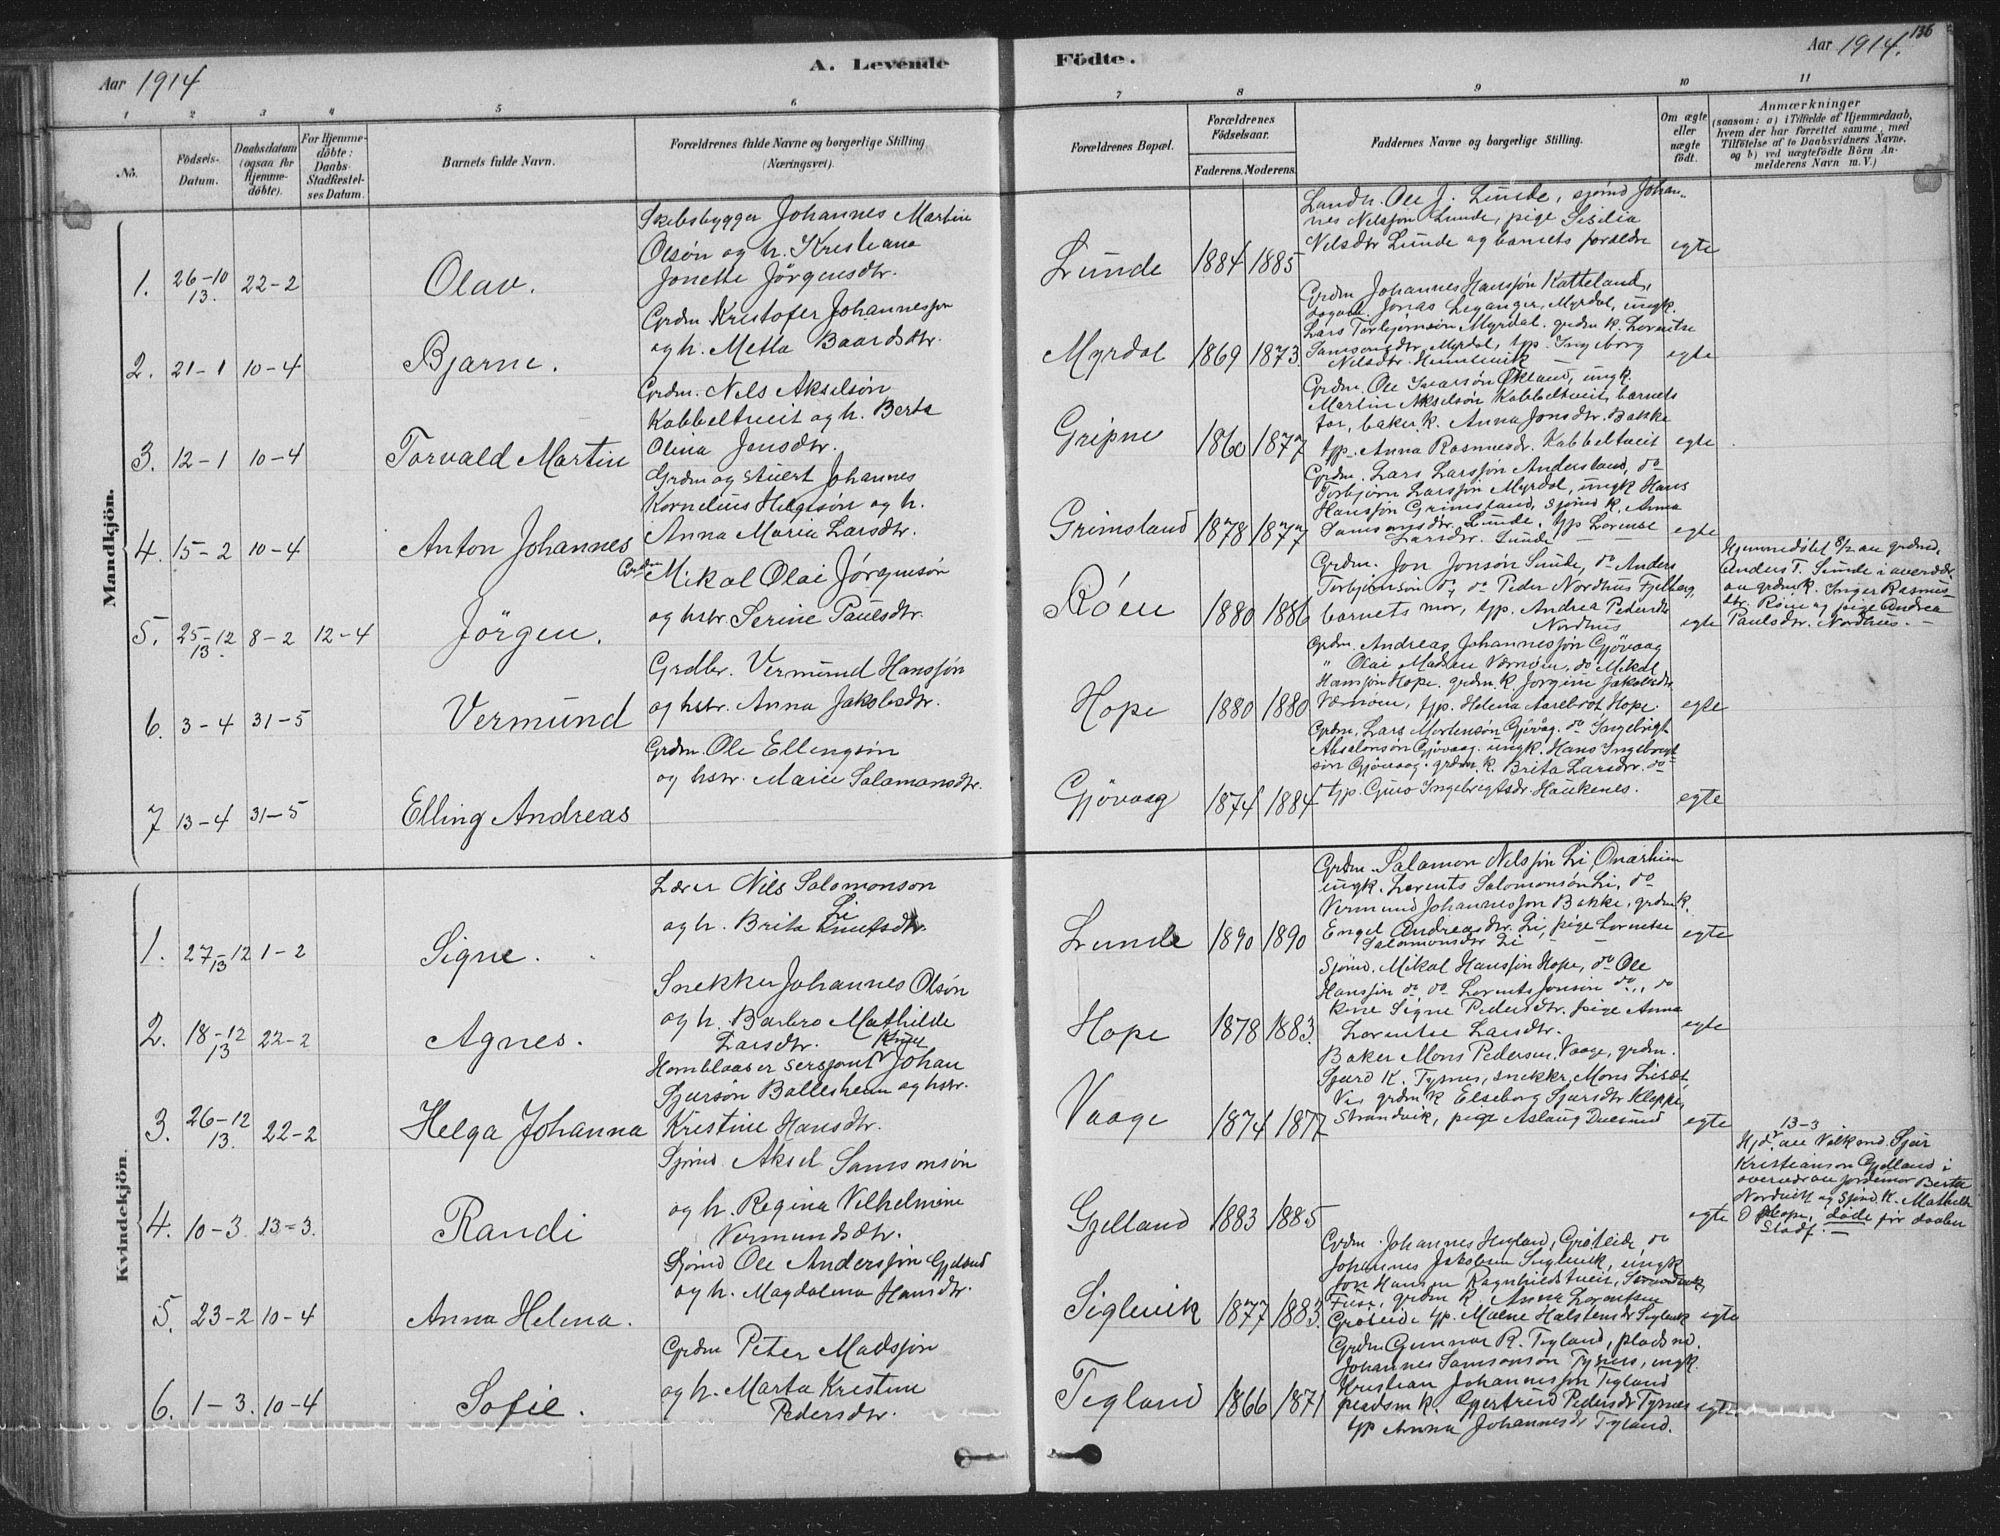 Aar 1914
A. Levende
Födte.
Aar 1914.
136
1 2 3 4 5 6
7 8 9 10 11
No.
Födsels-
Datum.
Daabsdatum
(ogsaa för
Hjemme-
döbte).
For Hjemme-
döbte:
Daabs-
Stadfæstel-
ses Datum.
Barnets fulde Navn.
Forældrenes fulde Navne og borgerlige Stilling
(Næringsvei).
Forældrenes Bopæl.
Forældrenes
Födselsaar.
Faderens. Moderens.
Faddernes Navne og borgerlige Stilling.
Om ægte
eller
uægte
födt.
Anmærkninger
(saasom: a) i Tilfælde af Hjemmedaab,
hvem der har forrettet samme, med
Tilföielse af to Daabsvidners Navne,
og b) ved uægtefödte Börn An-
melderens Navn m. V.)
Mandkjön.
1. 26-10
13. 22-2
Olav.
Skibsbygger Johannes Martin
Olsøn og h. Kristiana
Jonette Jörgensdtr.
Lunde
1884 1885
Landh. Ole J. Lunde, sjömd Johan-
nes Nilssøn Lunde, pige Sisilia
Nilsdtr Lunde og barnets forældre
egte
2. 21-1 10-4
Bjarne.
Grdm Kristofer Johannessøn
og h. Metta Baardsdtr.
Myrdal
1869 1873
Grdm Johannes Hanssøn Katteland,
Jonas Leganger, Myrdal, ungk.
Lars Torbjørnsøn Myrdal. grdm k. Lorentse
Samsonsdtr. Myrdal, tjp. Ingeborg
Nilsdtr.
egte
3. 12-1 10-4
Torvald Martin
Grdm. Nils Akselsön
Kabbeltveit og h. Berta
Olina Jonsdtr.
Gripne
1860 1877
Grdm. Ole Ivarsøn Økland, ungk.
Martin Akselsøn Kabbeltveit, barnets
far, baker k. Anna Jonsdtr. Bakke
tjp. Anna Rasmusdr. Kabbeltveit
egte
4. 15-2 10-4
Anton Johannes
Grdm og stuert Johannes
Kornelius Helgesön og h.
Anna Maria Larsdtr.
Grimsland
1878 1877
Grdm. Lars Larssøn Andersland, do
Torbjørn Larssøn Myrdal, ungk Hans
Hanssøn Grimsland, sjömd k. Anna
Samsonsdtr. Lunde, tjp Lorense
Larsdtr. Lunde
egte
5. 25-12
13 8-2 12-4
Jörgen.
Grdm
Mikal Olai Jörgensön
og hstr. Serine Paulsdtr.
Röen
1880 1886
Grdm. Jon Jonsön Lunde, do Anders
Torbjørnsön do, do Peder Nordhus Fjelberg,
barnets mor, tjp. Andrea Pedersdtr
Nordhus
egte
Hjemmedöbt 8/2 av grdmd,
Anders T. Lunde i overvær
av grdm k. Inger Rasmus-
dtr. Röen og pige Andrea
Paulsdtr. Nordhus.
6. 3-4 31-5
Vermund
Grdbr. Vermund Hanssøn
og hstr. Anna Jakobsdtr.
Hope
1880 1880
Grdm. Andreas Johannessøn Gjövaag
" Olai Madsen Værnöen, do Mikal
Hanssøn Hope. grdm. k. Jorgine Jakobsdtr.
Værnöen, tjp. Helena Aarebrot Hope.
egte
7 13-4 31-5
Elling Andreas
Grdm. Ole Ellingsön
og hstr. Marie Salamonsdtr.
Gjövaag
1874 1884
Grdm. Lars Mortensön Gjövag. do Ingebrigt
Absalonsön Gjövaag. ungk. Hans Ingebrigt-
sön Gjövaag. grdm. k. Brita Larsdtr. do
tjp. Guro Ingebrigtsdr Haukenes.
egte
Kvindekjön.
1. 27-12
13 1-2
Signe.
Lærer Nils Salomonson
Li
og h. Brita Knutsdtr.
Lunde
1890 1890
Grdm. Salamon Nilssøn Li, Onarheim
ungk. Lorents Salomonsön Li, do
Vermund Johannessøn Bakke, grdm k.
Engel Andreasdtr. Li, pige Lorentse
Salamonsdtr Li
egte
2. 18-12
13 22-2
Agnes.
Snekker Johannes Olsön
og h. Barbro Mathilde
Larsdtr.
Hope
1878 1883.
Sjömd. Mikal Hanssøn Hope, do Ole
Hanssøn do do Lorents Jonson do, do
kone Signe Pedersdtr. pige Anna
Lorentse Larsdtr.
egte
3. 26-12
13. 22-2
Helga Johanna
Hornblaaser sersjant Johan
Sjursön Ballesheim og hstr.
Kristine Hansdtr.
Vaage
1874 1877
Baker Mons Pedersen, Vaage, grdm.
Sjurd K. Tysnes, snekkr. Mons
grdm k Elseborg Sjursdtr Kleppe,
Strandvik, pige Aslaug Duesund
egte
4. 10-3 13-3.
Randi
Sjömd Aksel Samsonsön
og h. Regina Vilhelmine
Vermundsdtr.
Gjelland
1883 1885
egte
13-3
Hjd av Sjur
Kristianson Gjelland i
overvær av jordemor Berta
Nordvik og Sjömd. K. Mathilde
Hope, döde för daaben
Stadf.
5. 23-2 10-4
Anna Helena.
Sjömd Ole Anderssøn Gjelland
og h. Magdalena Hansdtr.
Siglevik
1877 1883.
Grdm. Johannes Hegland, Gröteide, do
Johannes Jakobsen Siglevik, ungk
Jon Hansen Ragnhildstveit, Strandvik,
Fuse, grdm k. Anna Lorentsen
Gröteide tjp. Malene Halstensdr Siglevik
egte
6. 1-3. 10-4
Sofie.
Grdm Peter Madssøn
og h. Marta Kristine
Pedersdtr.
Tegland
1866 1871
Grdm Gunnar R. Tegland, pladsmd.
Johannes Samsonsön Tysnes, ungk.
Kristian Johannessøn Tegland
pladsm k. Gjertrud Pedersdr Tysnes
tjp Anna Johannesdr Tegland.
egte